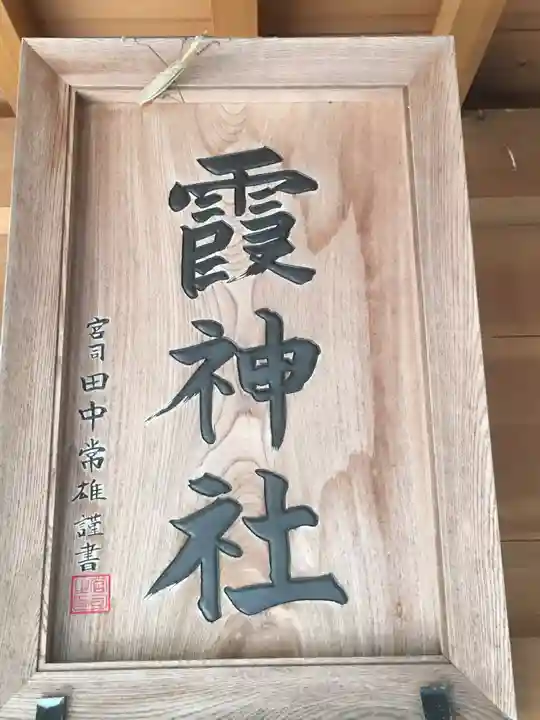 霞神社
宮司 田中常雄 謹書